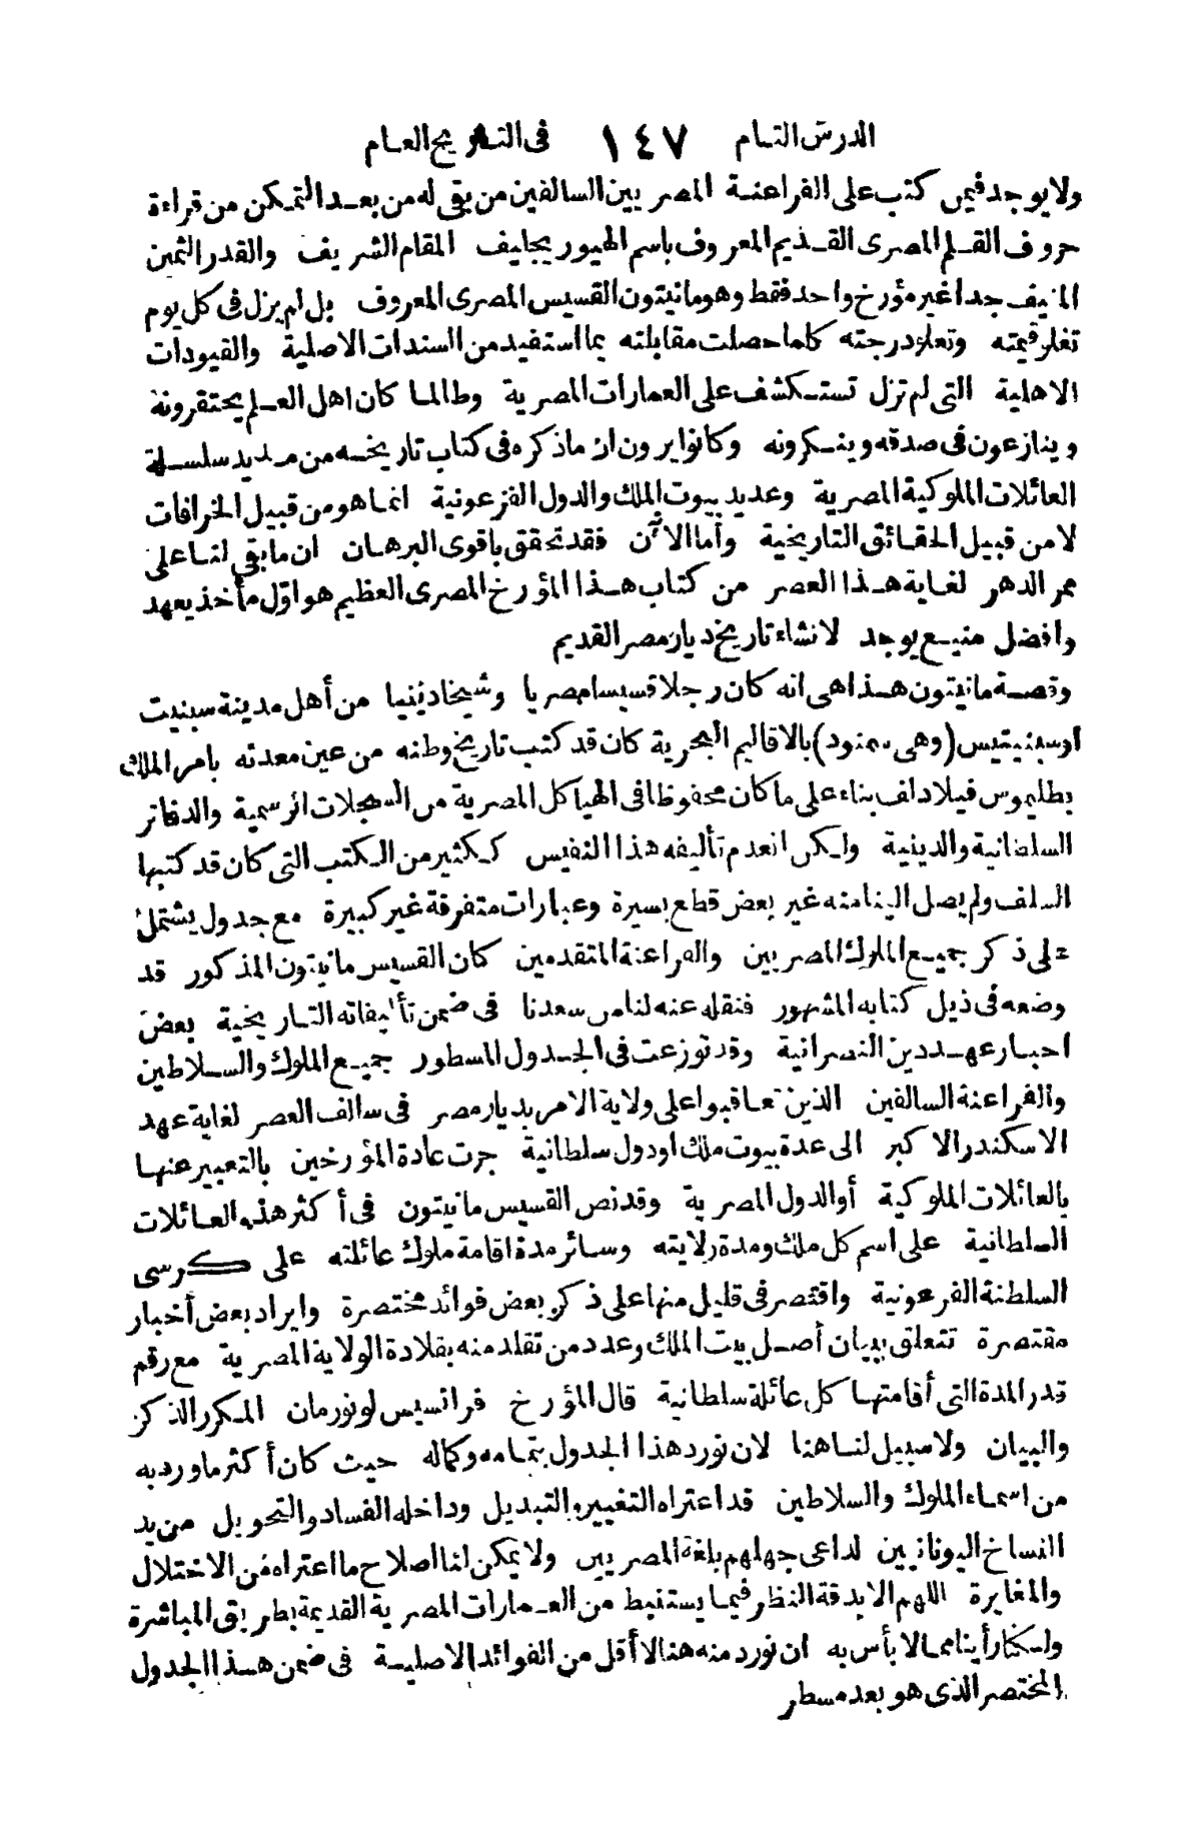 الدرس التام ١٤٧ فى التاريخ العام
ولا يوجد فيمن كتب على الفراعنة المصريين السالفين من بقى له من بعد التمكن من قراءة
حروف القلم المصرى القديم المعروف باسم الهيوريجليف المقام الشريف والقدر الثمين
المنيف جدا غير مؤرخ واحد فقط وهو مانيتون القسيس المصرى المعروف بل لم يزل فى كل يوم
تغلو قيمته وتعلو درجته كلما حصلت مقابلته بما استفيد من السندات الاصلية والقيودات
الاهلية التى لم تزل تستكشف على العمارات المصرية وطالما كان اهل العلم يحتقرونه
وينازعون فى صدقه وينكرونه وكانوا يرون ان ما ذكره فى كتاب تاريخه من مديد سلسلة
العائلات الملوكية المصرية وعديد بيوت الملك والدول الفرعونية انما هو من قبيل الخرافات
لا من قبيل الحقائق التاريخية وأما الآن فقد تحقق باقوى البرهان ان ما بقى لنا على
ممر الدهر لغاية هذا العصر من كتاب هذا المؤرخ المصرى العظيم هو اوّل مأخذ يعهد
وافضل منبع يوجد لانشاء تاريخ ديار مصر القديم
وقصة مانيتون هذا هى انه كان رجلا قسيسا مصريا وشيخا دينيا من أهل مدينة سبنيت
اوسبنيتيس (وهى سمنود) بالاقاليم البحرية كان قد كتب تاريخ وطنه من عين معدته بامر الملك
بطليموس فيلادلف بناء على ما كان محفوظا فى الهياكل المصرية من السجلات الرسمية والدفاتر
السلطانية والدينية ولكن انعدم تأليفه هذا النفيس ككثير من الكتب التى كان قد كتبها
السلف ولم يصل الينا منه غير بعض قطع يسيرة وعبارات متفرقة غير كبيرة مع جدول يشتمل
على ذكر جميع الملوك المصريين والفراعنة المتقدمين كان القسيس مانيتون المذكور قد
وضعه فى ذيل كتابه المشهور فنقله عنه لنا من سعدنا فى ضمن تأليفاته التاريخية بعض
احبار عهد دين النصرانية وقد توزعت فى الجدول المسطور جميع الملوك والسلاطين
والفراعنة السالفين الذين تعاقبوا على ولاية الامر بديار مصر فى سالف العصر لغاية عهد
الاسكندر الاكبر الى عدة بيوت ملك اودول سلطانية جرت عادة المؤرخين بالتعبير عنها
بالعائلات الملوكية أو الدول المصرية وقد نص القسيس مانيتون فى أكثر هذه العائلات
السلطانية على اسم كل ملك ومدة ولايته وسائر مدة اقامة ملوك عائلته على كرسى
السلطنة الفرعونية واقتصر فى قليل منها على ذكر بعض فوائد مختصرة وايراد بعض أخبار
مقتصرة تتعلق ببيان أصل بيت الملك وعدد من تقلد منه بقلادة الولاية المصرية مع رقم
قدر المدة التى أقامتها كل عائلة سلطانية قال المؤرخ فرانسيس لونورمان المكرر الذكر
والبيان ولا سبيل لنا هنا لان نورد هذا الجدول بتمامه وكماله حيث كان أكثر ما ورد به
من اسماء الملوك والسلاطين قد اعتراه التغيير والتبديل وداخله الفساد والتحويل من يد
النساخ اليونانيين لداعى جهلهم بلغة المصريين ولا يمكن لنا اصلاح ما اعتراه من الاختلال
والمغايرة اللهم الا بدقة النظر فيما يستنبط من العمارات المصرية القديمة بطريق المباشرة
ولكنا رأينا مما لا بأس به ان نورد منه هنا لا أقل من الفوائد الاصلية فى ضمن هذا الجدول
المختصر الذى هو بعد مسطر